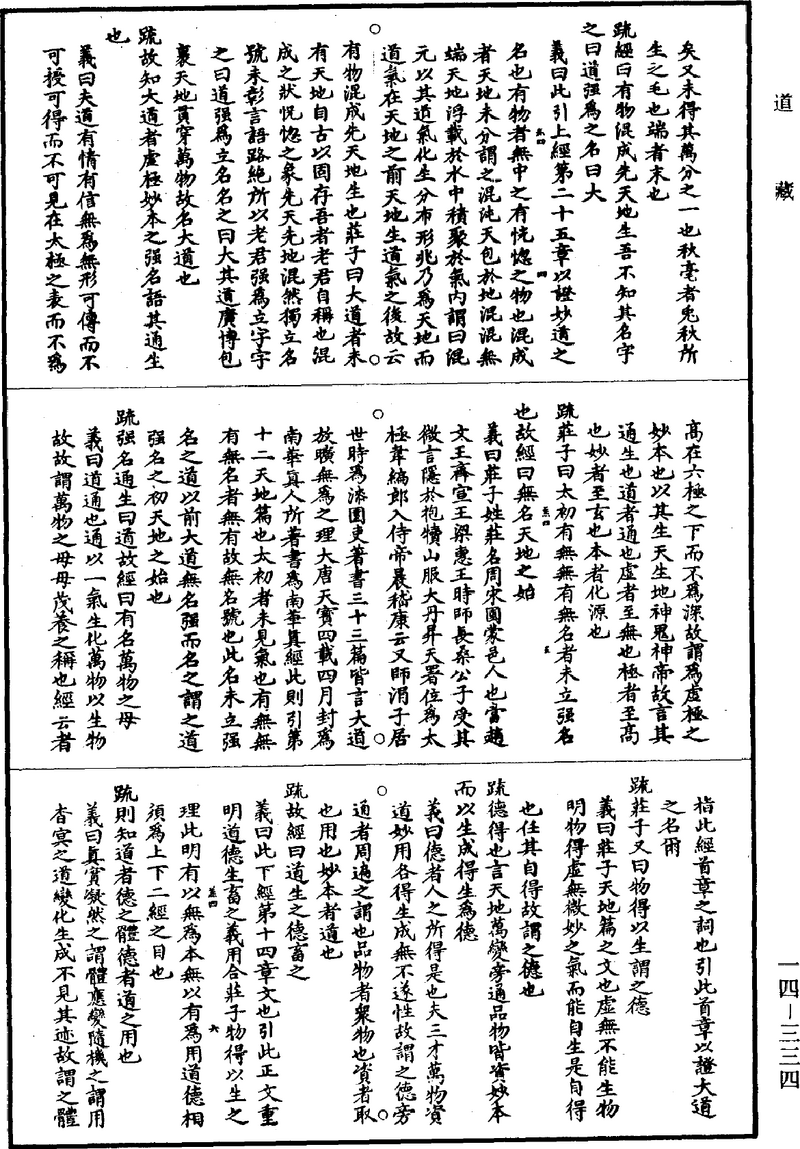 道藏
矣又未得其萬分之一也秋毫者兎秋所
生之毛也端者末也
疏經曰有物混成先天地生吾不知其名字
之曰道强爲之名曰大
義曰此引上經第二十五章以證妙道之
名也有物者無中之有恍惚之物也混成
者天地未分謂之混沌天包於地混混無
端天地浮載於水中積聚於氣内謂曰混
元以其道氣化生分布形兆乃爲天地而
道氣在天地之前天地生道氣之後故云
有物混成先天地生也莊子曰大道者未
有天地自古以固存吾者老君自稱也混
成之狀恍惚之象先天先地混然獨立名
號未彰言語路絶所以老君强爲立字字
之曰道强爲立名名之曰大其道廣博包
裹天地貫穿萬物故名大道也
疏故知大道者虛極妙本之强名語其通生
也
義曰夫道有情有信無爲無形可傳而不
可授可得而不可見在太極之表而不爲
高在六極之下而不爲深故謂爲虛極之
妙本也以其生天生地神鬼神帝故言其
通生也道者通也虛者至無也極者至高
也妙者至玄也本者化源也
疏莊子曰太初有無無有無名者未立强名
也故經曰無名天地之始
義曰莊子姓莊名周宋國蒙邑人也當趙
文王齊宣王梁惠王時師長桑公子受其
微言隱於抱犢山服大丹昇天署位爲太
極韋編郎入侍帝晨嵇康云又師涓子居
世時爲漆園吏著書三十三篇皆言大道
放曠無爲之理大唐天寶四載四月封爲
南華真人所著書爲南華真經此則引第
十二天地篇也太初者未見氣也有無無
有無名者無有故無名號也此名未立强
名之道以前大道無名强而名之謂之道
强名之初天地之始也
疏强名通生曰道故經曰有名萬物之母
義曰道通也通以一氣生化萬物以生物
故故謂萬物之母母茂養之稱也經云者
指此經首章之詞也引此首章以證大道
之名爾
疏莊子又曰物得以生謂之德
義曰莊子天地篇之文也虛無不能生物
明物得虛無微妙之氣而能自生是自得
也任其自得故謂之德也
疏德得也言天地萬變旁通品物皆資妙本
而以生成得生爲德
義曰德者人之所得是也夫三才萬物資
道妙用各得生成無不遂性故謂之德旁
通者周遍之謂也品物者衆物也資者取
也用也妙本者道也
疏故經曰道生之德畜之
義曰此下經第十四章文也引此正文重
明道德生畜之義用合莊子物得以生之
理此明有以無爲本無以有爲用道德相
須爲上下二經之目也
疏則知道者德之體德者道之用也
義曰真實凝然之謂體應變隨機之謂用
杳冥之道變化生成不見其迹故謂之體
一四—三三四